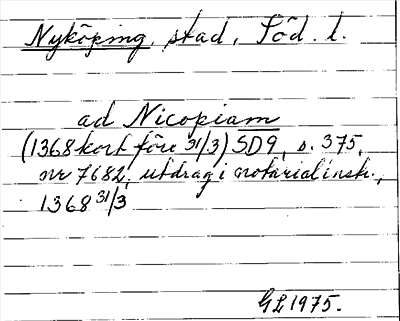 Nyköping, stad, Söd. l.
ad Nicopiam
(1368 kort före 31/3) SD9, s. 375,
nr 7682, utdrag i notarialinstr.,
1368 31/3
GL 1975.